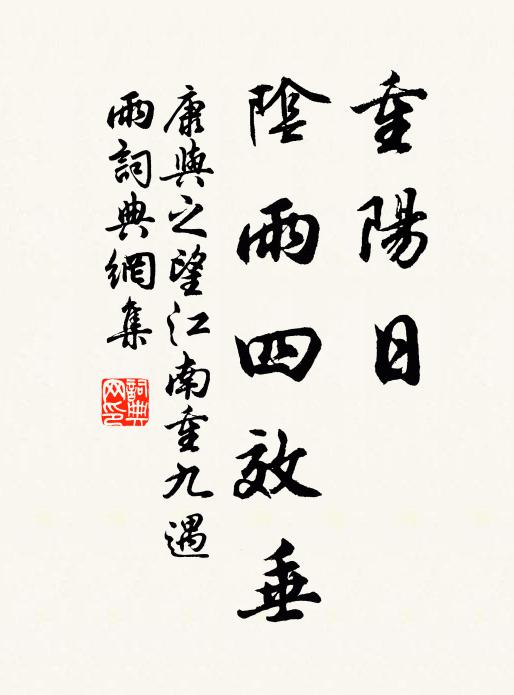 重陽日
陰雨四效垂
康與之望江南重九遇
雨詞典網集
詞典网印